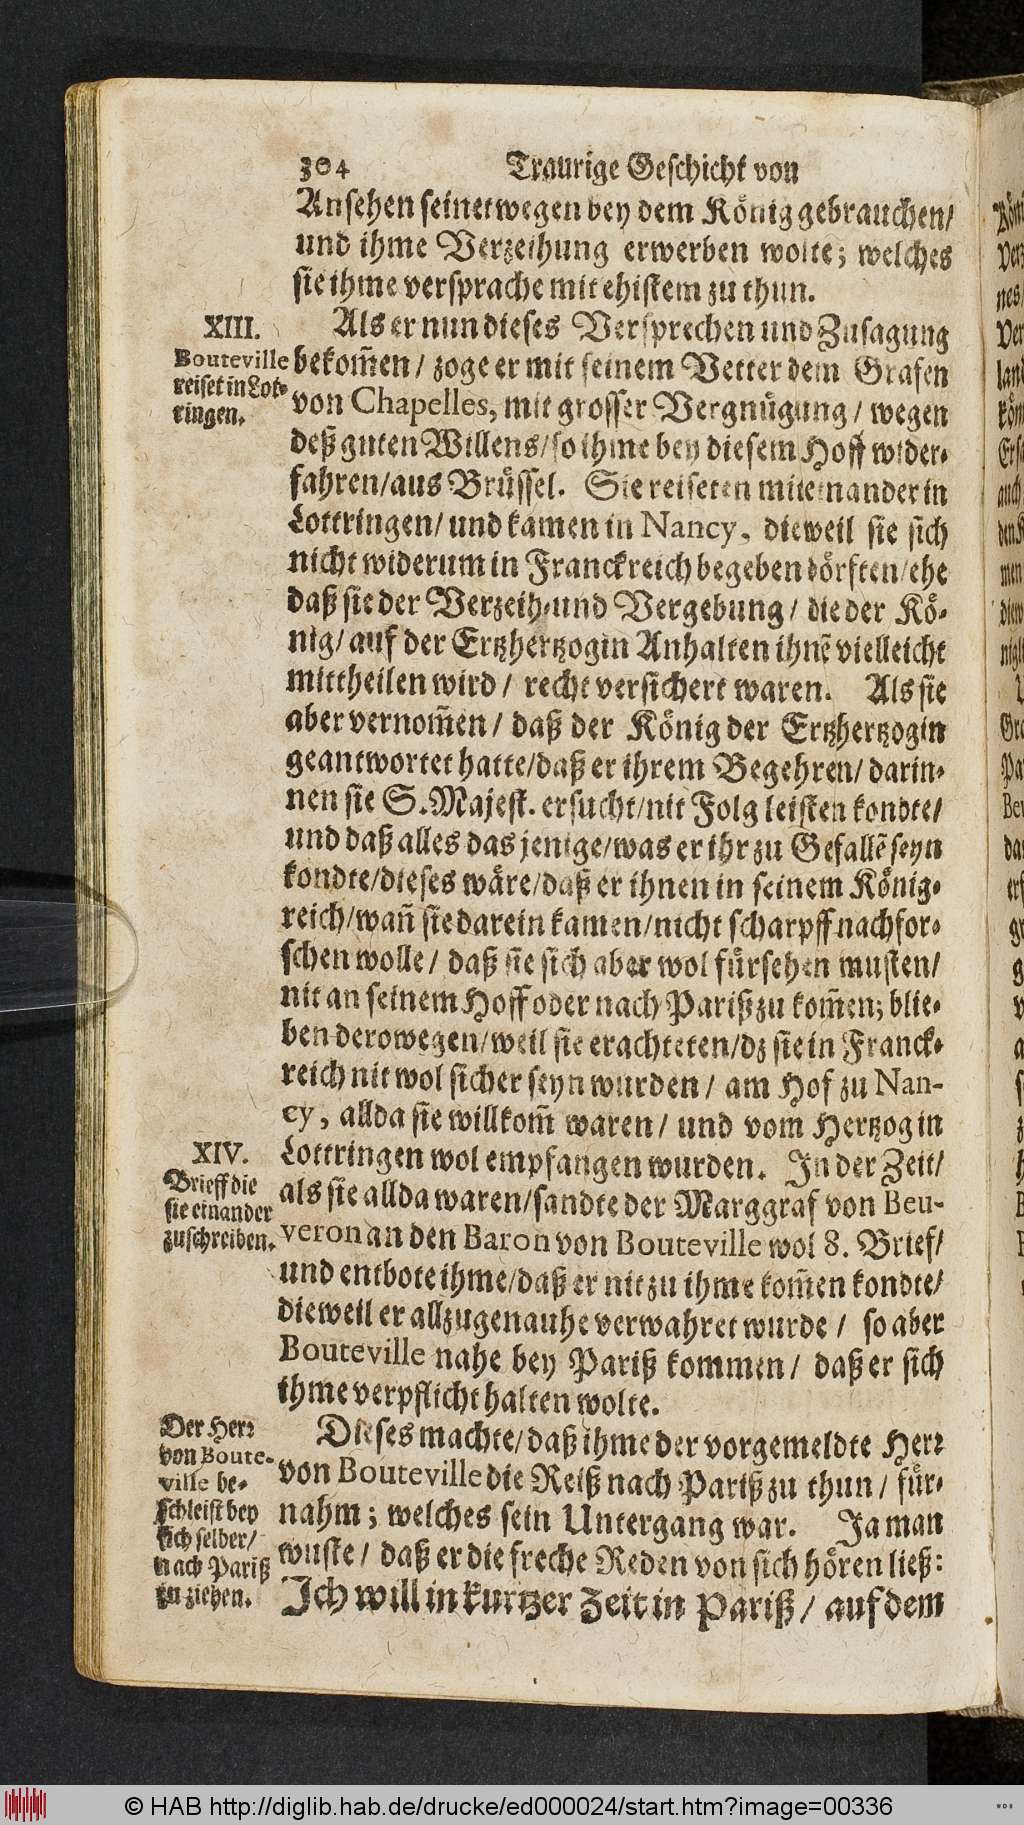 304 Traurige Geschicht von
Ansehen seinetwegen bey dem König gebrauchen/
und ihme Verzeihung erwerben wolte; welches
sie ihme versprache mit ehistem zu thun.
XIII.
Bouteville
reiset in Lot-
ringen.
Als er nun dieses Versprechen und Zusagung
bekom̃en / zoge er mit seinem Vetter dem Grafen
von Chapelles, mit grosser Vergnügung / wegen
deß guten Willens/ so ihme bey diesem Hoff wider-
fahren/aus Brüssel. Sie reiseten miteinander in
Lottringen/ und kamen in Nancy, dieweil sie sich
nicht widerum in Franckreich begeben dörften/ehe
daß sie der Verzeih-und Vergebung / die der Kö-
nig/ auf der Ertzhertzogin Anhalten ihnẽ vielleicht
mittheilen wird / recht versichert waren. Als sie
aber vernom̃en / daß der König der Ertzhertzogin
geantwortet hatte/daß er ihrem Begehren/ darin-
nen sie S. Majest. ersucht/nit Folg leisten kondte/
und daß alles das jenige/was er ihr zu Gefallẽ seyn
kondte/dieses wäre/daß er ihnen in seinem König-
reich/wañ sie darein kamen/nicht scharpff nachfor-
schen wolle / daß sie sich aber wol fürsehen musten/
nit an seinem Hoff oder nach Pariß zu kom̃en; blie-
ben derowegen/weil sie erachteten/dz sie in Franck-
reich nit wol sicher seyn wurden / am Hof zu Nan-
cy, allda sie willkom̃ waren / und vom Hertzog in
Lottringen wol empfangen wurden. In der Zeit/
XIV.
Brieff die
sie einander
zuschreiben.
als sie allda waren/sandte der Marggraf von Beu-
veron an den Baron von Bouteville wol 8. Brief/
und entbote ihme/daß er nit zu ihme kom̃en kondte/
dieweil er allzugenauhe verwahret wurde / so aber
Bouteville nahe bey Pariß kommen / daß er sich
ihme verpflicht halten wolte.
Der Herꝛ
von Boute-
ville be-
schleist bey
sich selber/
nach Pariß
zu ziehen.
Dieses machte/daß ihme der vorgemeldte Herꝛ
von Bouteville die Reiß nach Pariß zu thun / für-
nahm; welches sein Untergang war. Ja man
wuste / daß er die freche Reden von sich hören ließ:
Ich will in kurtzer Zeit in Pariß / auf dem
© HAB http://diglib.hab.de/drucke/ed000024/start.htm?image=00336